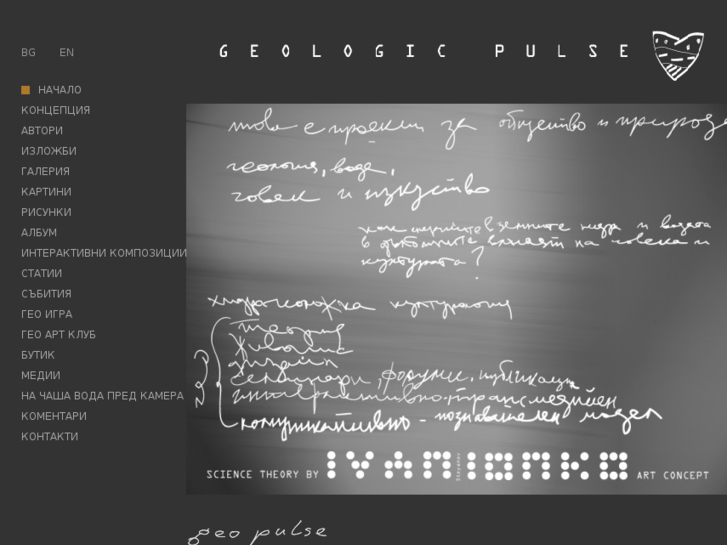 BG EN
GEOLOGIC PULSE
НАЧАЛО
КОНЦЕПЦИЯ
АВТОРИ
ИЗЛОЖБИ
ГАЛЕРИЯ
КАРТИНИ
РИСУНКИ
АЛБУМ
ИНТЕРАКТИВНИ КОМПОЗИЦИИ
СТАТИИ
СЪБИТИЯ
ГЕО ИГРА
ГЕО АРТ КЛУБ
БУТИК
МЕДИИ
НА ЧАША ВОДА ПРЕД КАМЕРА
КОМЕНТАРИ
КОНТАКТИ
това е проект за общество и природа
геология, вода,
човек и изкуство
земните недра и водата
на човека и
културата?
теория
живопис
дизайн
семинари, форуми, публикации
комуникативно - познавателен модел
SCIENCE THEORY BY IVAN IONKO ART CONCEPT
geo pulse